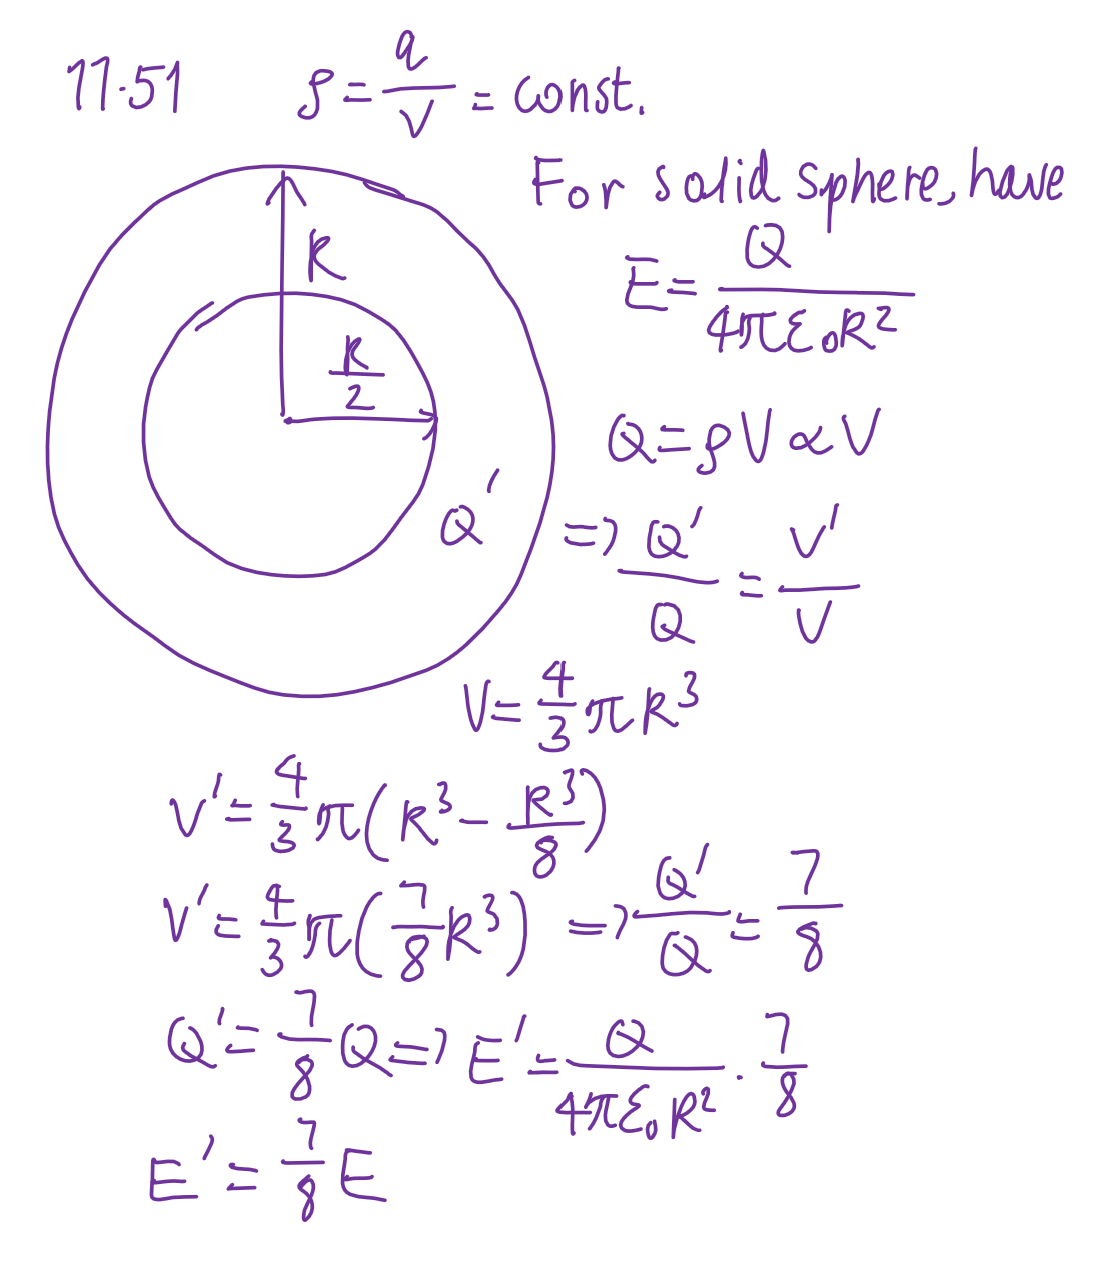 11.51 ρ = q/V = const.
For solid sphere, have
E = Q/(4πε₀R²)
R
R/2
Q'
Q = ρV ∝ V
=> Q'/Q = V'/V
V = 4/3 πR³
V' = 4/3 π(R³ - R³/8)
V' = 4/3 π(7/8 R³) => Q'/Q = 7/8
Q' = 7/8 Q => E' = Q/(4πε₀R²) · 7/8
E' = 7/8 E